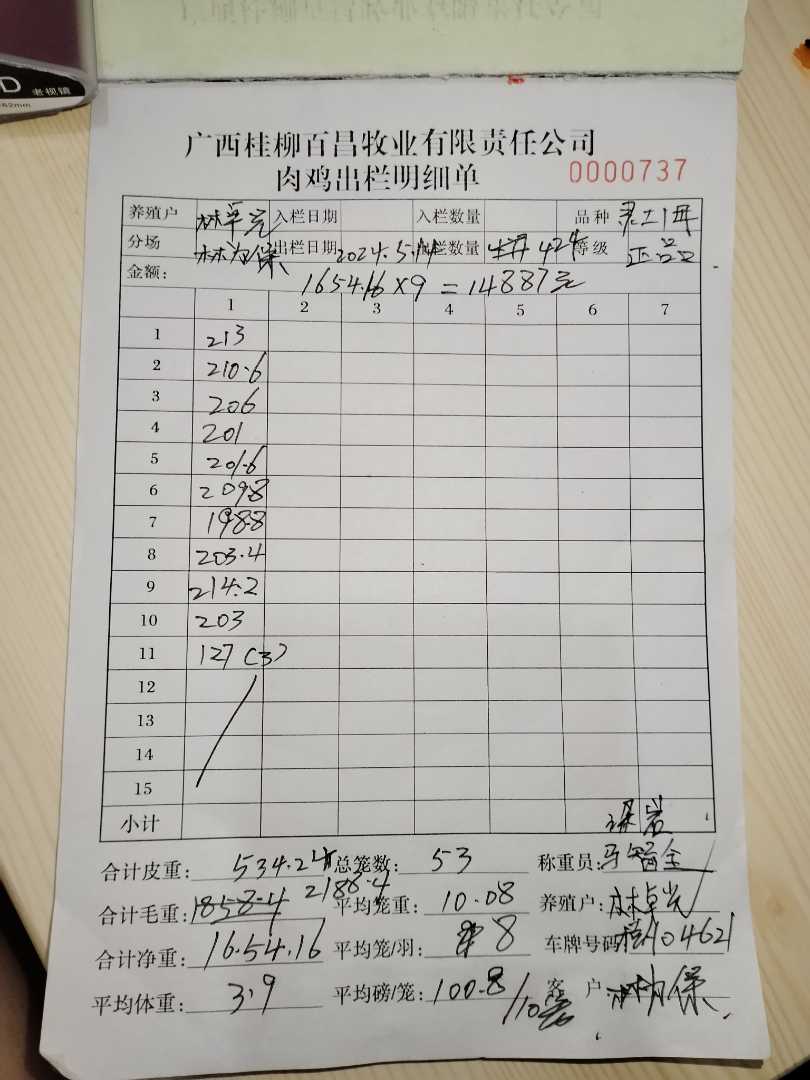 D 老视镜
62mm
广西桂柳百昌牧业有限责任公司
肉鸡出栏明细单 0000737
养殖户 林卓光 入栏日期 入栏数量 品种 灵土1再
分场 出栏日期 2024.5.14 出栏数量 424 等级 正品
金额: 1654.16×9=14887元
1 2 3 4 5 6 7
1 213
2 210.6
3 206
4 201
5 201.6
6 209.8
7 198.8
8 203.4
9 214.2
10 203
11 127(3)
12
13
14
15
小计
合计皮重: 534.24 总笼数: 53 称重员:
合计毛重: 1858.4 2188.4 平均笼重: 10.08 养殖户: 林卓光
合计净重: 1654.16 平均笼/羽: 8 车牌号码: 04621
平均体重: 3.9 平均磅/笼: 100.8/10 客户